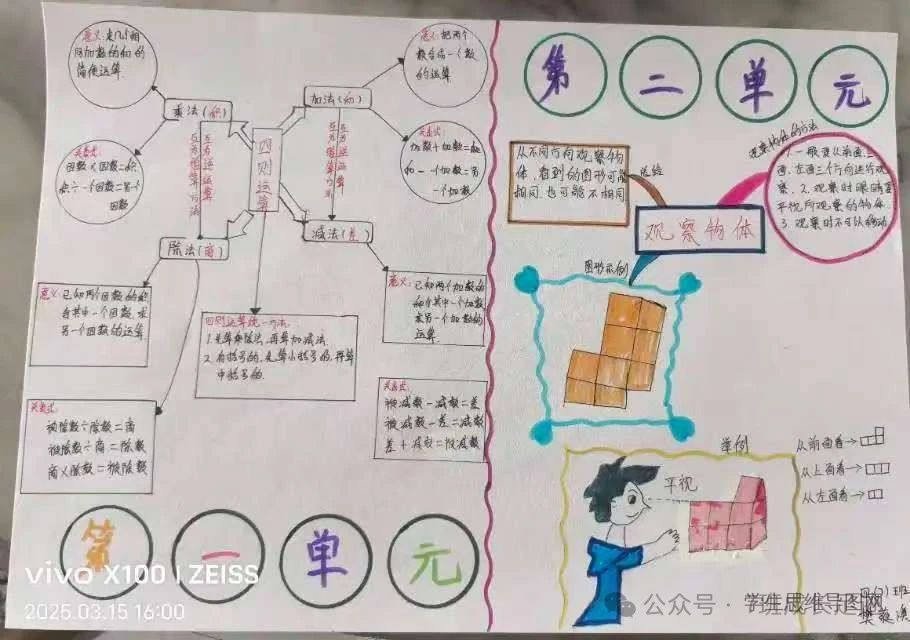 意义:是几个相
同加数的和的
简便运算.
乘法(积)
关系式:
因数×因数=积
积÷一个因数=另一个
因数
互为逆运算
四则运算
加法(和)
意义:把两个
数合成一个数
的运算
关系式:
加数+加数=和
和-一个加数=另
一个加数
互为逆运算
除法(商)
减法(差)
意义:已知两个因数的积
与其中一个因数,求
另一个因数的运算
四则运算统一方法:
1.先算乘除法,再算加减法.
2.有括号的,先算小括号的,再算
中括号的.
意义:已知两个加数的
和与其中一个加数
求另一个加数的
运算.
关系式:
被除数÷除数=商
被除数÷商=除数
商×除数=被除数
关系式:
被减数-减数=差
被减数-差=减数
差+减数=被减数
第一单元
第二单元
从不同方向观察物
体,看到的图形可能
相同,也可能不相同
总结
观察物体的方法
1.一般要从前面、上
面、左面三个方向进行观
察.2.观察时眼睛要
平视所观察的物体
3.观察时不可以移动
观察物体
图形示例
举例
平视
从前面看→
从上面看→
从左面看→
vivo X100 | ZEISS
2025.03.15 16:00
公众号·学生思维导图网